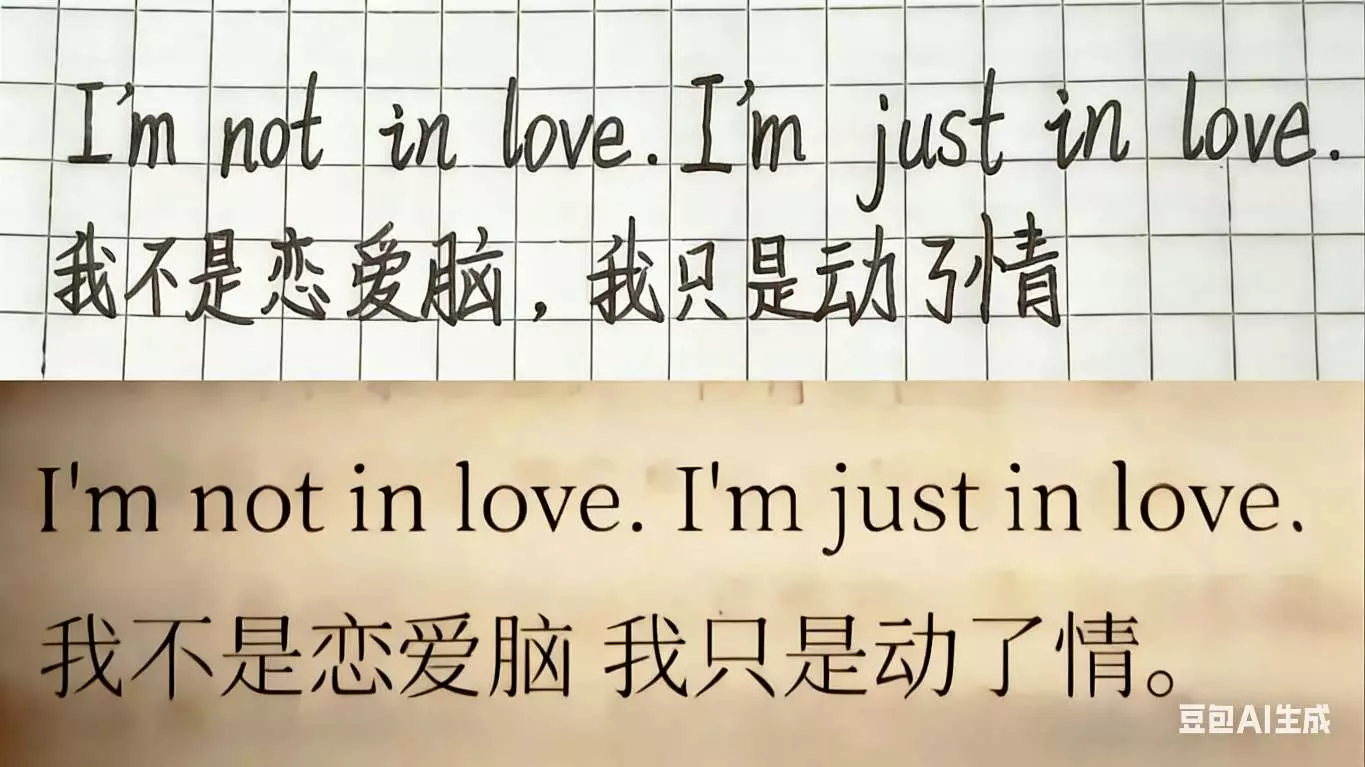 I'm not in love. I'm just in love.
我不是恋爱脑，我只是动了情
I'm not in love. I'm just in love.
我不是恋爱脑 我只是动了情。
豆包AI生成